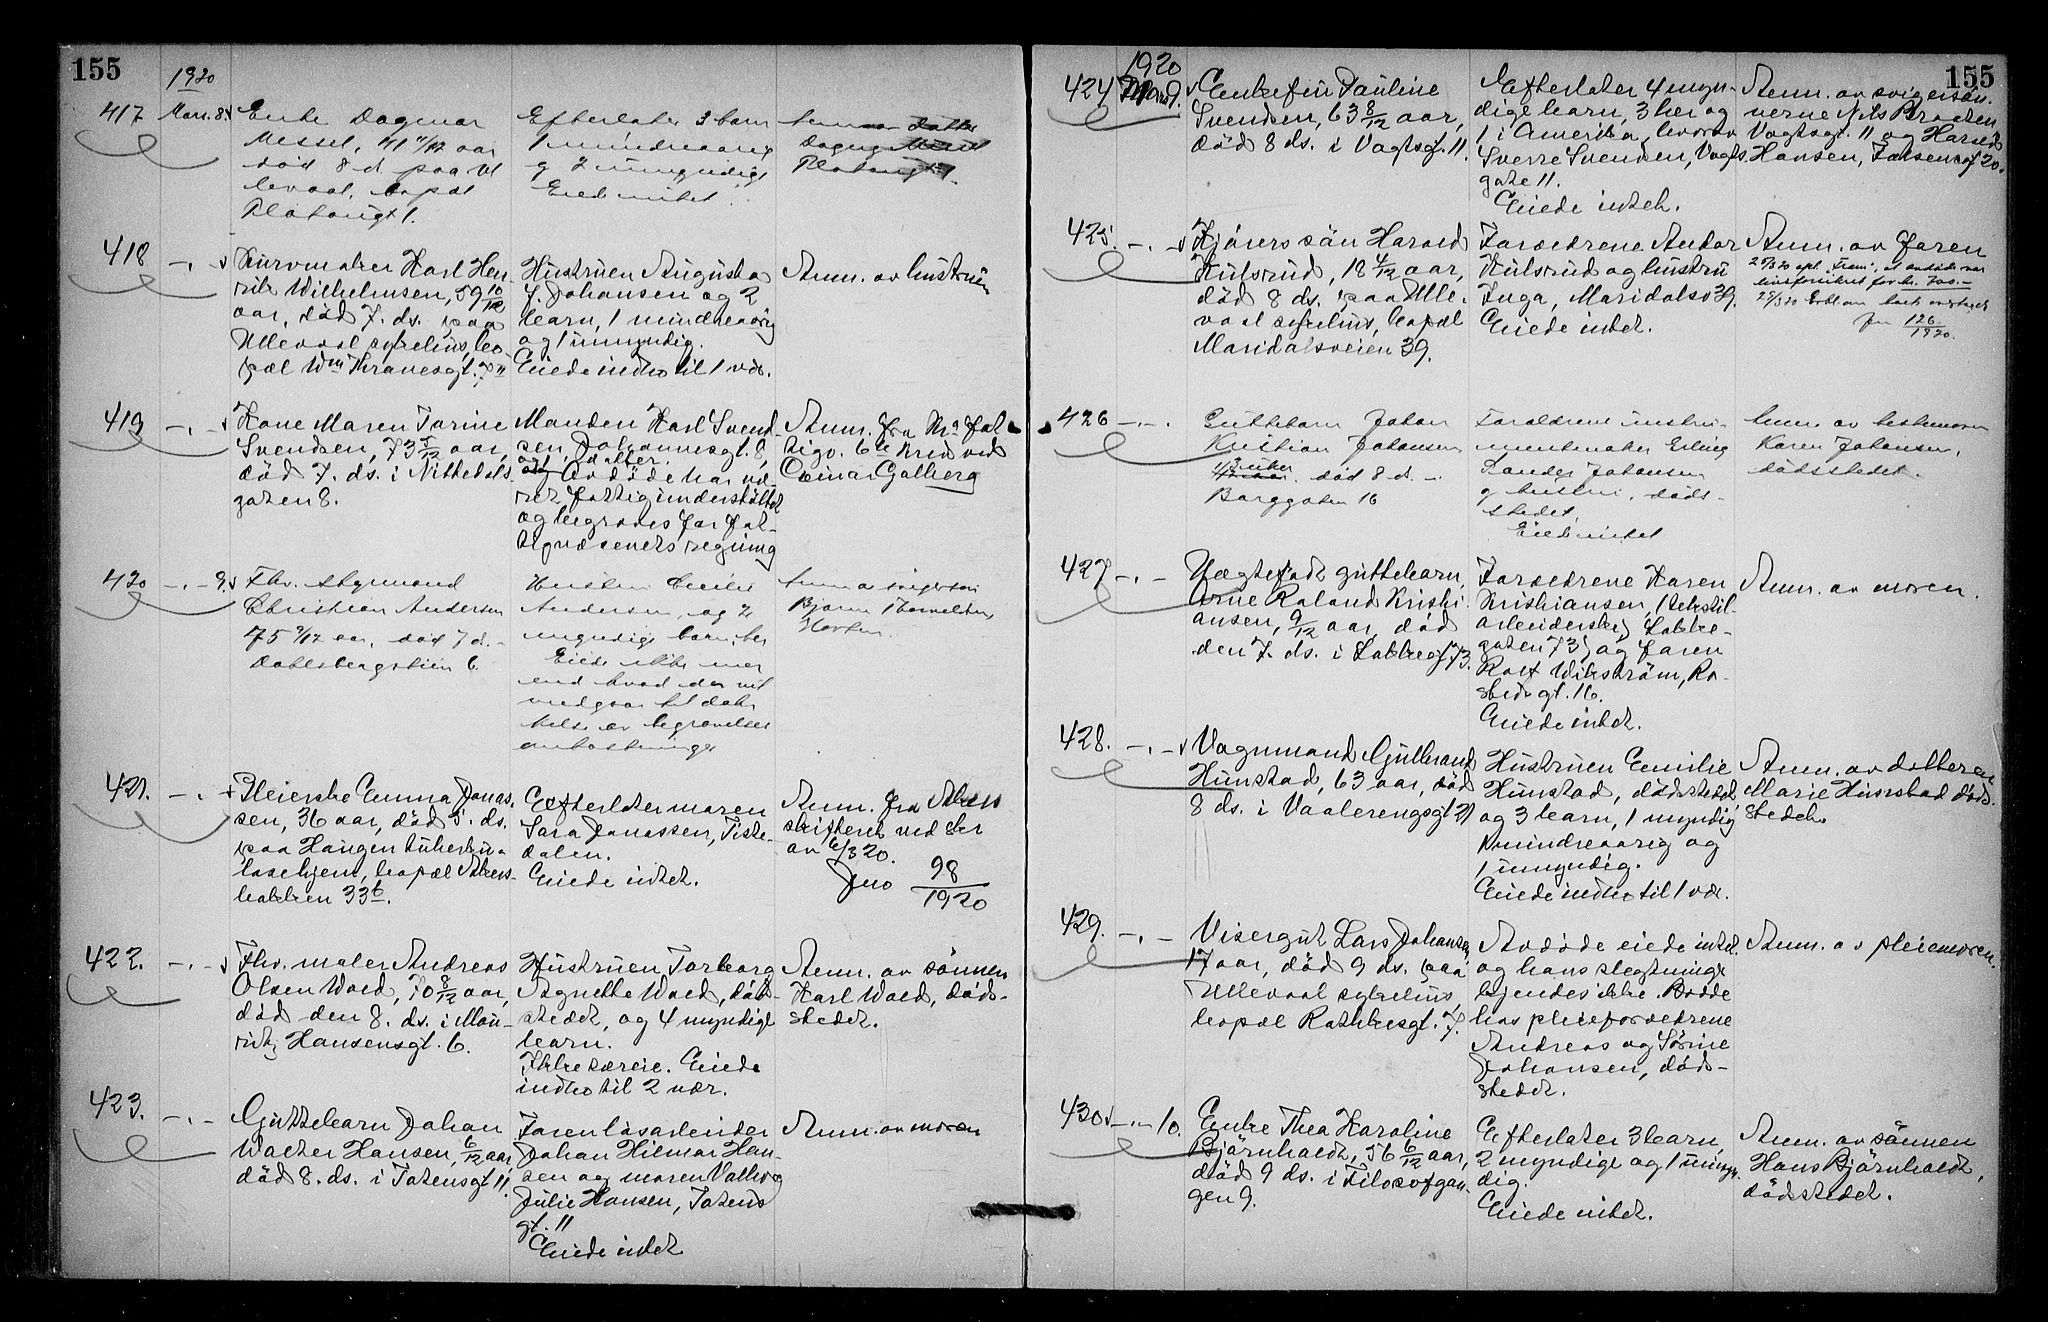 155
1920
417 Mars 8. Enke Dagmar
Messel, 41 11/12 aar
død 8 d. paa Ul
levaal, bopæl
Platougt 1.
Efterlater 3 barn
1 mindreaarig
og 2 umyndige
Eied intet
datter
Platougt 1.
418 -.- Kurvmaker Karl Hen-
rik Wilhelmsen, 59 10/12
aar, død 7. ds. paa
Ullevaal sykehus, bo-
pæl Wm Thranesgt.
Hustruen Augusta
f. Johansen og 2
barn, 1 mindreaarig
og 1 umyndig.
Eiede indbo til 1 vær.
Anm. av hustruen
419 -.- Kone Maren Torine
Svendsen, 73 5/12 aar,
død 7. ds. i Nittedals-
gaten 8.
Manden Karl Svend-
sen, Johannesgt. 8,
og datter.
Avdøde har væ-
ret fattigunderstøttet
og begraves for fat-
tigvæsenets regning
Anm. fra Kra fat-
tigv. 6te kred ved
Oscar Galberg
420 -.- 9. Fhv. styrmand
Christian Andersen
75 9/12 aar, død 7 d.
Dahlsbergstien 6
Hustru Cecilie
Andersen og 2
myndige barn, her
Eiede ikke mer
end hvad der vil
medgaa til dæk-
kelse av begravelses
omkostninger
Anm. a svigersøn
Bjarne Thorvaldsen,
Horten.
421. -.- Pleierske Emma Jonas-
sen, 36 aar, død 5. ds.
paa Haugen tuberku-
losehjem, bopæl Akers-
bakken 33b.
Efterlater moren
Sara Jonassen, Tiste-
dalen.
Eiede intet.
Anm. fra Akers
skifteret ved skr
av 6/3 20.
Jno 98/1920
422. -.- Fhv. maler Andreas
Olsen Wold, 70 8/12 aar,
død den 8. ds. i Mau-
ritz Hansensgt. 6.
Hustruen Torborg
Agnethe Wold, død-
stedet, og 4 myndige
barn.
Ikke særeie. Eiede
indbo til 2 vær.
Anm. av sønnen
Karl Wold, døds-
stedet.
423. -.- Guttebarn Johan
Walter Hansen, 6/12 aar
død 8. ds. i Totensgt 11.
Faren løsarbeider
Johan Hilmar Han-
sen og moren Valborg
Julie Hansen, Totens
gt. 11
Eiede intet
155
1920
424 Mars 9. Enkefru Pauline
Svendsen, 63 8/12 aar,
død 8 ds. i Vogtsgt. 11.
Efterlater 4 myn-
dige barn, 3 her og
1 i Amerika, hvorav
Sverre Svendsen, Vogts
gate 11.
Eiede intet.
Anm. av svigersøn-
nerne Nils Braaten
Vogtsgt. 11 og Harald
Hansen, Falsensgt 20.
425. -.- Kjørers søn Harald
Hulsrud, 18 4/12 aar,
død 8 ds. paa Ulle-
vaal sykehus, bopæl
Maridalsveien 39.
Forældrene Andor
Hulsrud og hustru
Inga, Maridalsv 39.
Eiede intet.
Anm. av faren
jnr 126/1920.
426 -.-. Guttebarn Johan
Kristian Johansen
3 uker, død 8 d.
Borggaten 16
Foræld­rene instru-
mentmaker Erling
Sander Johansen
og hustru, døds-
stedet,
Eied intet
Anm. av bestemoren
Karen Johansen,
dødsstedet.
427 -.- Uegtefødt guttebarn
Arne Roland Kristi-
ansen, 9/12 aar, død
den 7. ds. i Lakkegt 73.
Forældrene Karen
Kristiansen, (tekstil-
arbeiderske) Lakke-
gaten 73 og faren
Rolf Wikstrøm, Ro-
stedsgt. 16.
Eiede intet.
Anm. av moren.
428. -.- Vognmand Gulbrand
Hunstad, 63 aar, død
8 ds. i Vaalerengsgt 21
Hustruen Emilie
Hunstad, dødsstedet
og 3 barn, 1 myndig
1 mindreaarig og
1 umyndig.
Eiede indbo til 1 vær.
Anm. av datteren
Marie Hunstad døds-
stedet.
429. -.- Visergut Lars Johansen,
17 aar, død 9 ds. paa
Ullevaal sykehus,
bopæl Rathkesgt. 7.
Avdøde eiede intet
og hans slegtninge
kjendes ikke. Bodde
hos pleieforældrene
Andreas og Sørine
Johansen, død-
stedet.
Anm. av pleiemoren.
430 -.- 10. Enke Thea Karoline
Bjørnholdt, 56 6/12 aar,
død 9 ds. i Filosofgan-
gen 9.
Efterlater 3 barn,
2 myndige og 1 umyn-
dig.
Eiede intet.
Anm. av sønnen
Hans Bjørnholdt,
dødsstedet.